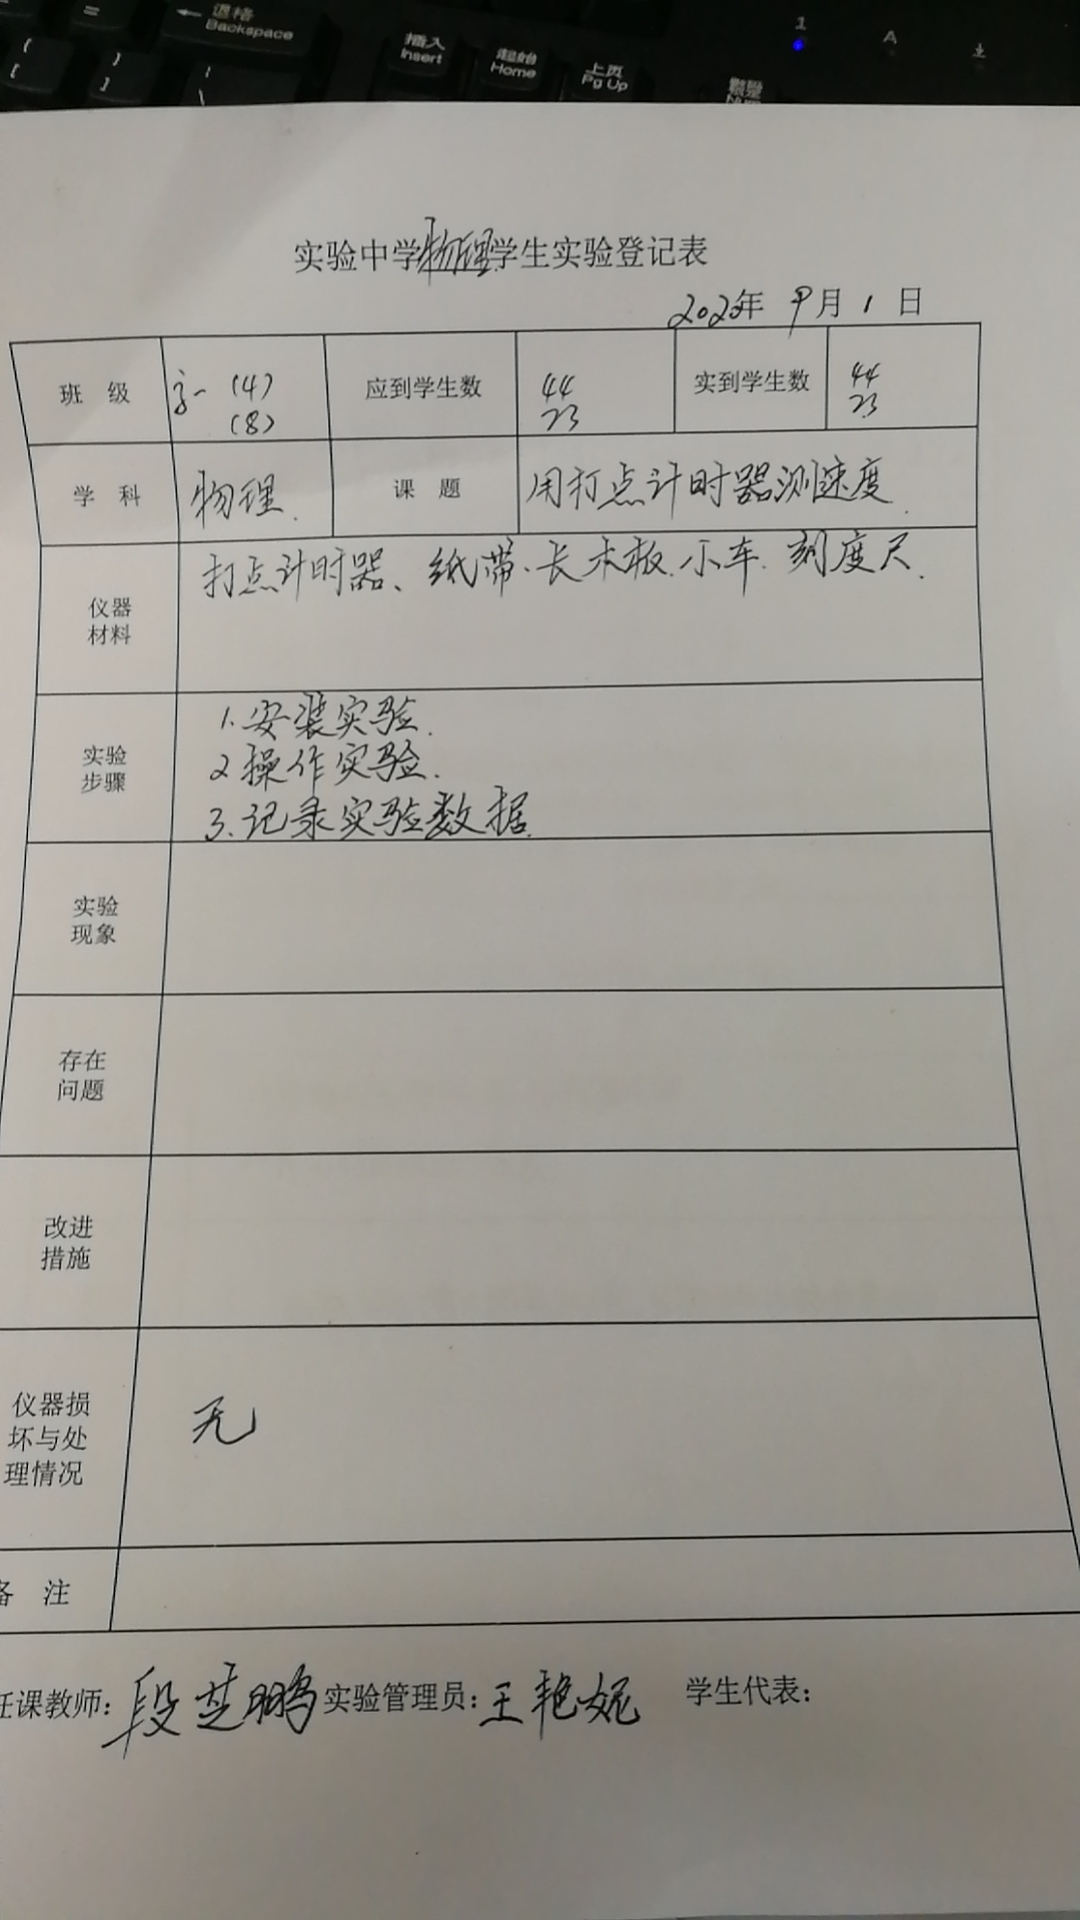 ← 退格
Backspace
插入
Insert
起始
Home
上页
Pg Up
1
A
实验中学物理学生实验登记表
年 9月 1 日
班 级 高一 (4) 应到学生数 44 实到学生数 44
(8) 23 23
学 科 物理. 课 题 用打点计时器测速度
仪器
材料
打点计时器、纸带、长木板、小车、刻度尺.
实验
步骤
1.安装实验.
2操作实验.
3.记录实验数据
实验
现象
存在
问题
改进
措施
仪器损
坏与处
理情况
无
备 注
任课教师: 段芝鹏 实验管理员: 王艳妮 学生代表: